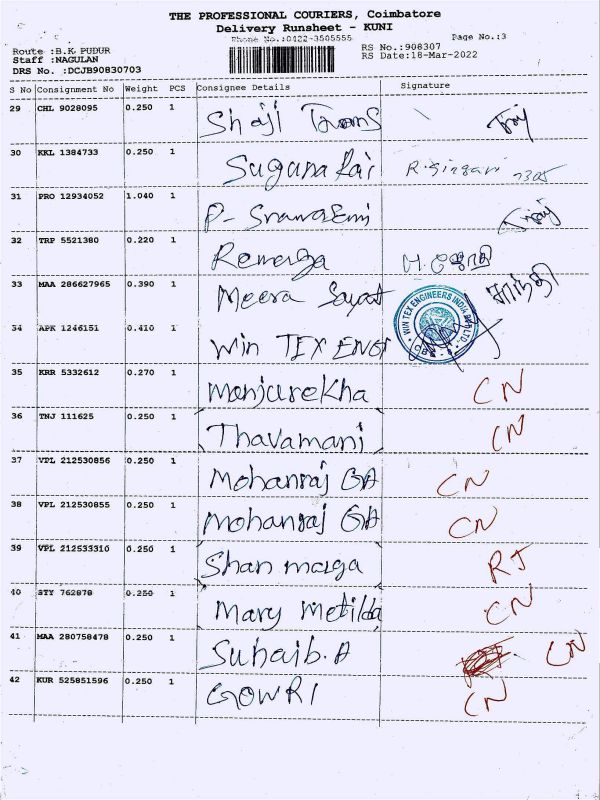 THE PROFESSIONAL COURIERS, Coimbatore
Delivery Runsheet - KUNI
Phone No.:0422-3505555
Page No.:3
Route :B.K PUDUR
RS No.:908307
Staff :NAGULAN
RS Date:18-Mar-2022
DRS No. :DCJB90830703
S No Consignment No Weight PCS Consignee Details Signature
29 CHL 9028095 0.250 1 Shaji
30 KKL 1384733 0.250 1 Suguna
31 PRO 12934052 1.040 1 P-
32 TRP 5521380 0.220 1
33 MAA 286627965 0.390 1 Meera சாந்தி
34 APK 1246151 0.410 1 Win TEX ENGI WIN TEX ENGINEERS INDIA
35 KRR 5332612 0.270 1 Manjurekha CN
36 TNJ 111625 0.250 1 Thavamani CN
37 VPL 212530856 0.250 1 Mohanraj GA CN
38 VPL 212530855 0.250 1 Mohanraj GA CN
39 VPL 212533310 0.250 1 Shan marga RJ
40 STY 762878 0.250 1 Mary Metilda CN
41 MAA 280758478 0.250 1 Suhaib.A CN
42 KUR 525851596 0.250 1 GOWRI CN